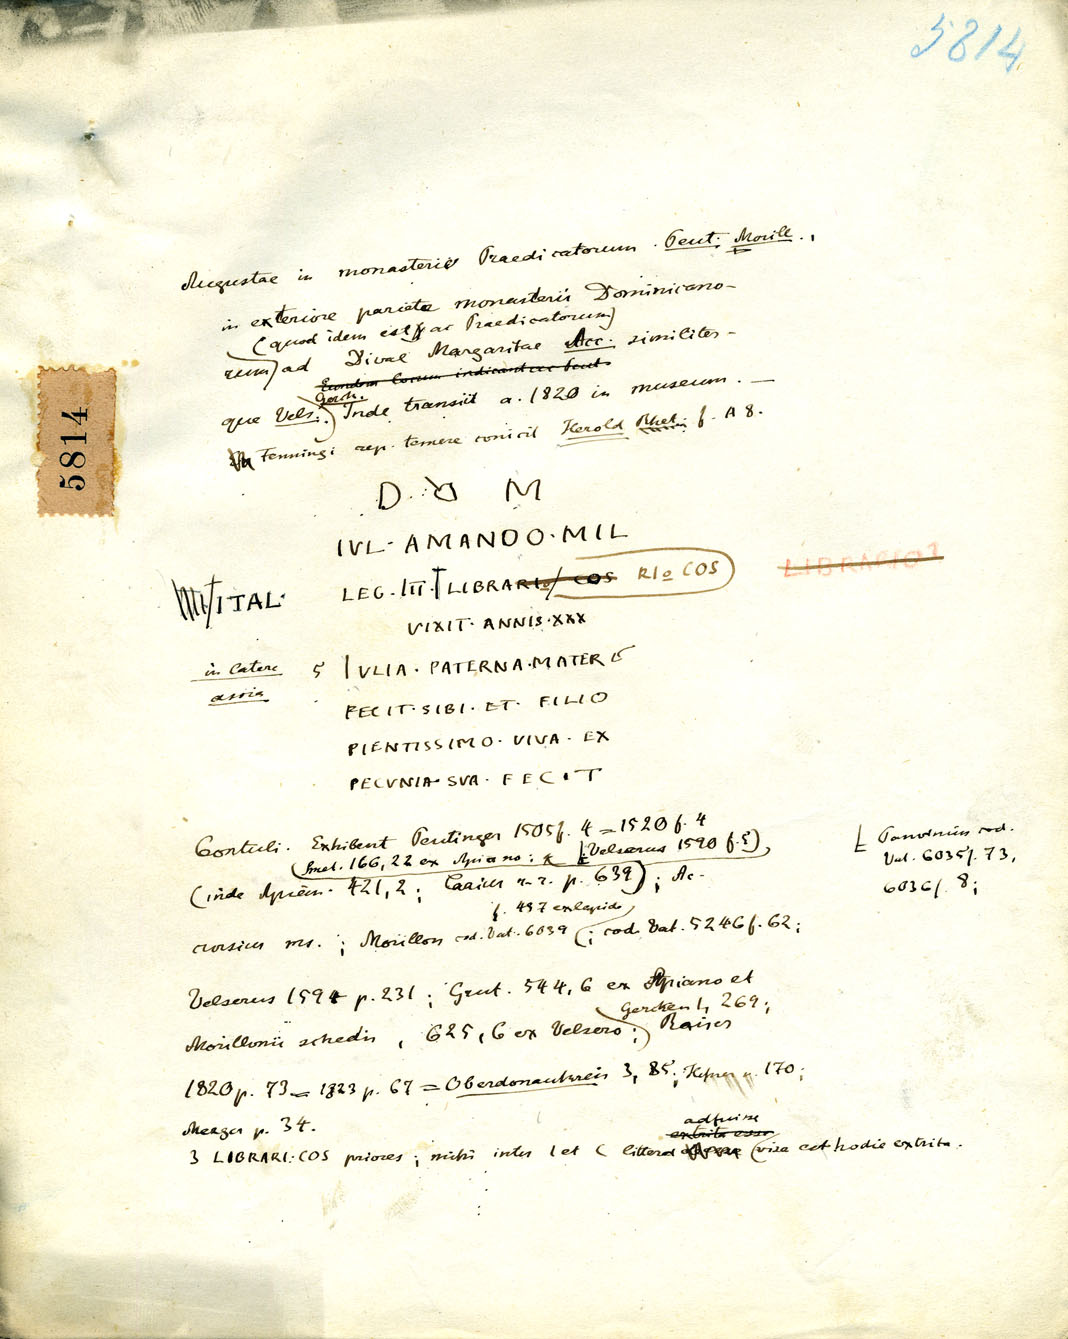 5814
Augustae in monasterio Praedicatorum. Peut. Morill.,
in exteriore pariete monasterii Dominicano-
(quod idem est ac Praedicatorum)
rum) ad Divae Margaritae Acc. similiter-
Eundem locum indicant
Gerck.
que Vels. Inde transiit a. 1820 in museum. —
Fenningi rep. temere conicit Herold f. A 8.
5814
D. M
IVL. AMANDO. MIL
LEG. III. ITAL. LIBRARIo COS RIo COS
LIBRARIO?
VIXIT. ANNIS. XXX
in latere
ascia
5 IVLIA. PATERNA. MATER
FECIT. SIBI. ET. FILIO
PIENTISSIMO. VIVA. EX
PECVNIA. SVA. FECIT
Contuli. Exhibent Peutinger 1505 f. 4 = 1520 f. 4
Smet. 166, 22 ex Apiano; Velserus 1590 f. 5),
Panvinius cod.
Vat. 6035 f. 73,
6036 f. 8;
(inde Apian. 421, 2; Lazius r. r. p. 639); Ac-
f. 497 ex lapide
cursius ms.; Morillon cod. Vat. 6039; cod. Vat. 5246 f. 62;
Velserus 1594 p. 231; Grut. 544, 6 ex Apiano et
Gercken 1, 269;
Morillonii schedis, 625, 6 ex Velsero; Raiser
1820 p. 73 = 1823 p. 67 = Oberdonaukreis 3, 85; Hefner p. 170;
Mezger p. 34.
adfuisse
extrita esse
3 LIBRARI: COS priores; mihi inter I et C littera visa est hodie extrita.